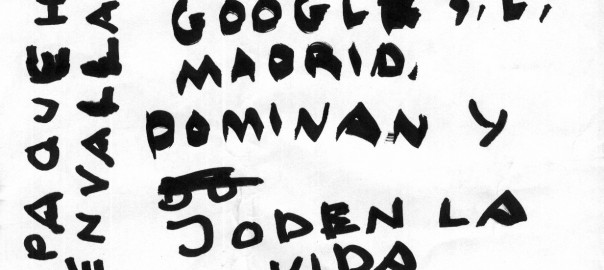 GOOGLE S, L,
MADRID,
DOMINAN Y
JODEN LA
VIDA
PAQUE H
ENVALLA